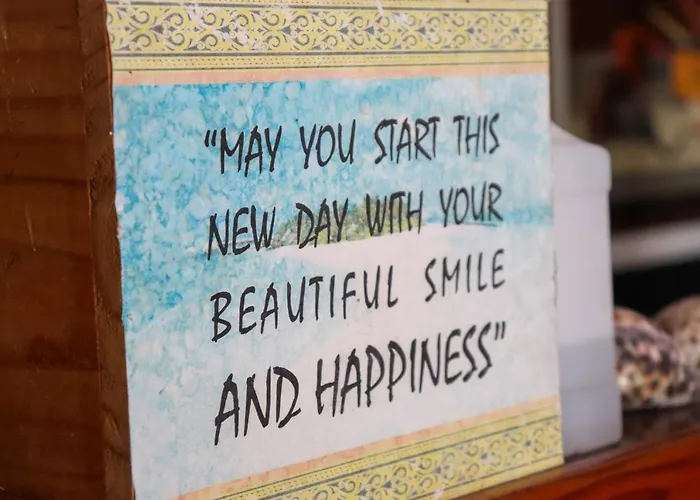 “MAY YOU START THIS
NEW DAY WITH YOUR
BEAUTIFUL SMILE
AND HAPPINESS”